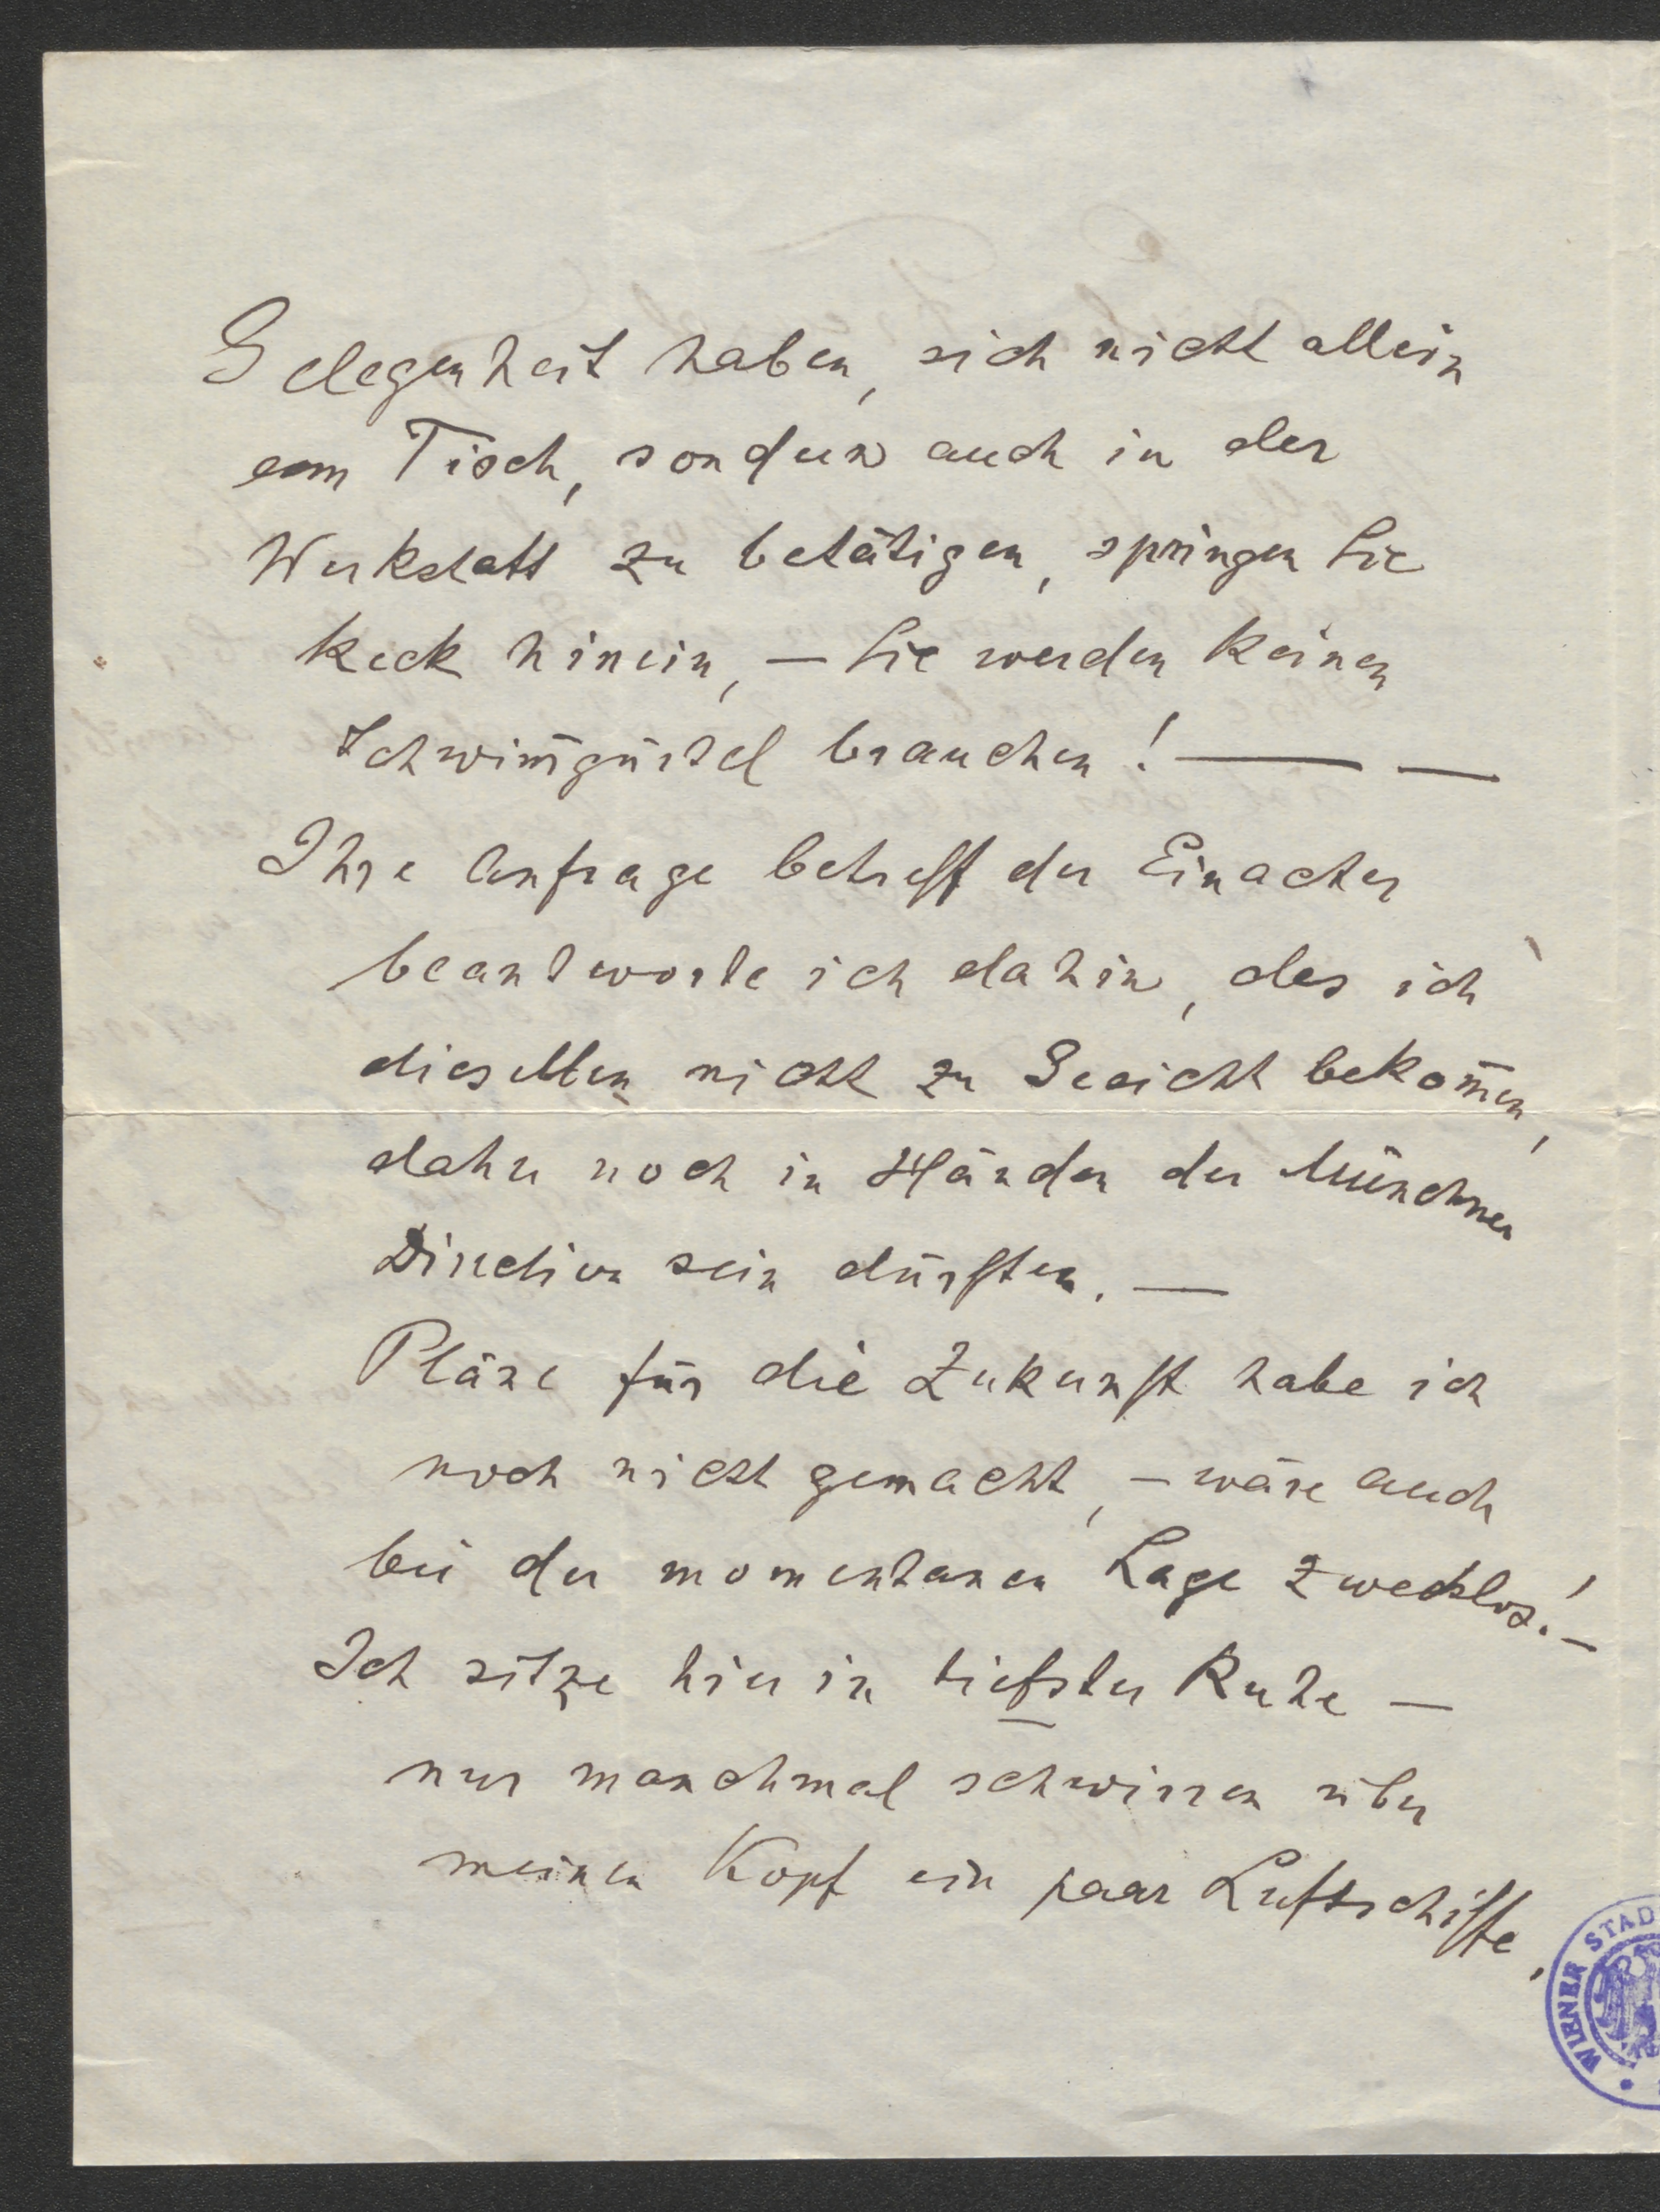 Gelegenheit haben, sich nicht allein
am Tisch, sondern auch in der
Werkstatt zu betätigen, springen Sie
keck hinein, — Sie werden keinen
Schwim̅gürtel brauchen! — —
Ihre Anfrage betreff der Einacter
beantworte ich dahin, das ich
dieselben nicht zu Gesicht bekom̅en,
daher noch in Händen der Münchner
Direction sein dürften. —
Pläne für die Zukunft habe ich
noch nicht gemacht, – wäre auch
bei der momentanen Lage zwecklos! –
Ich sitze hier in tiefster Ruhe —
nur manchmal schwirren über
meinen Kopf ein paar Luftschiffe,
WIENER STAD